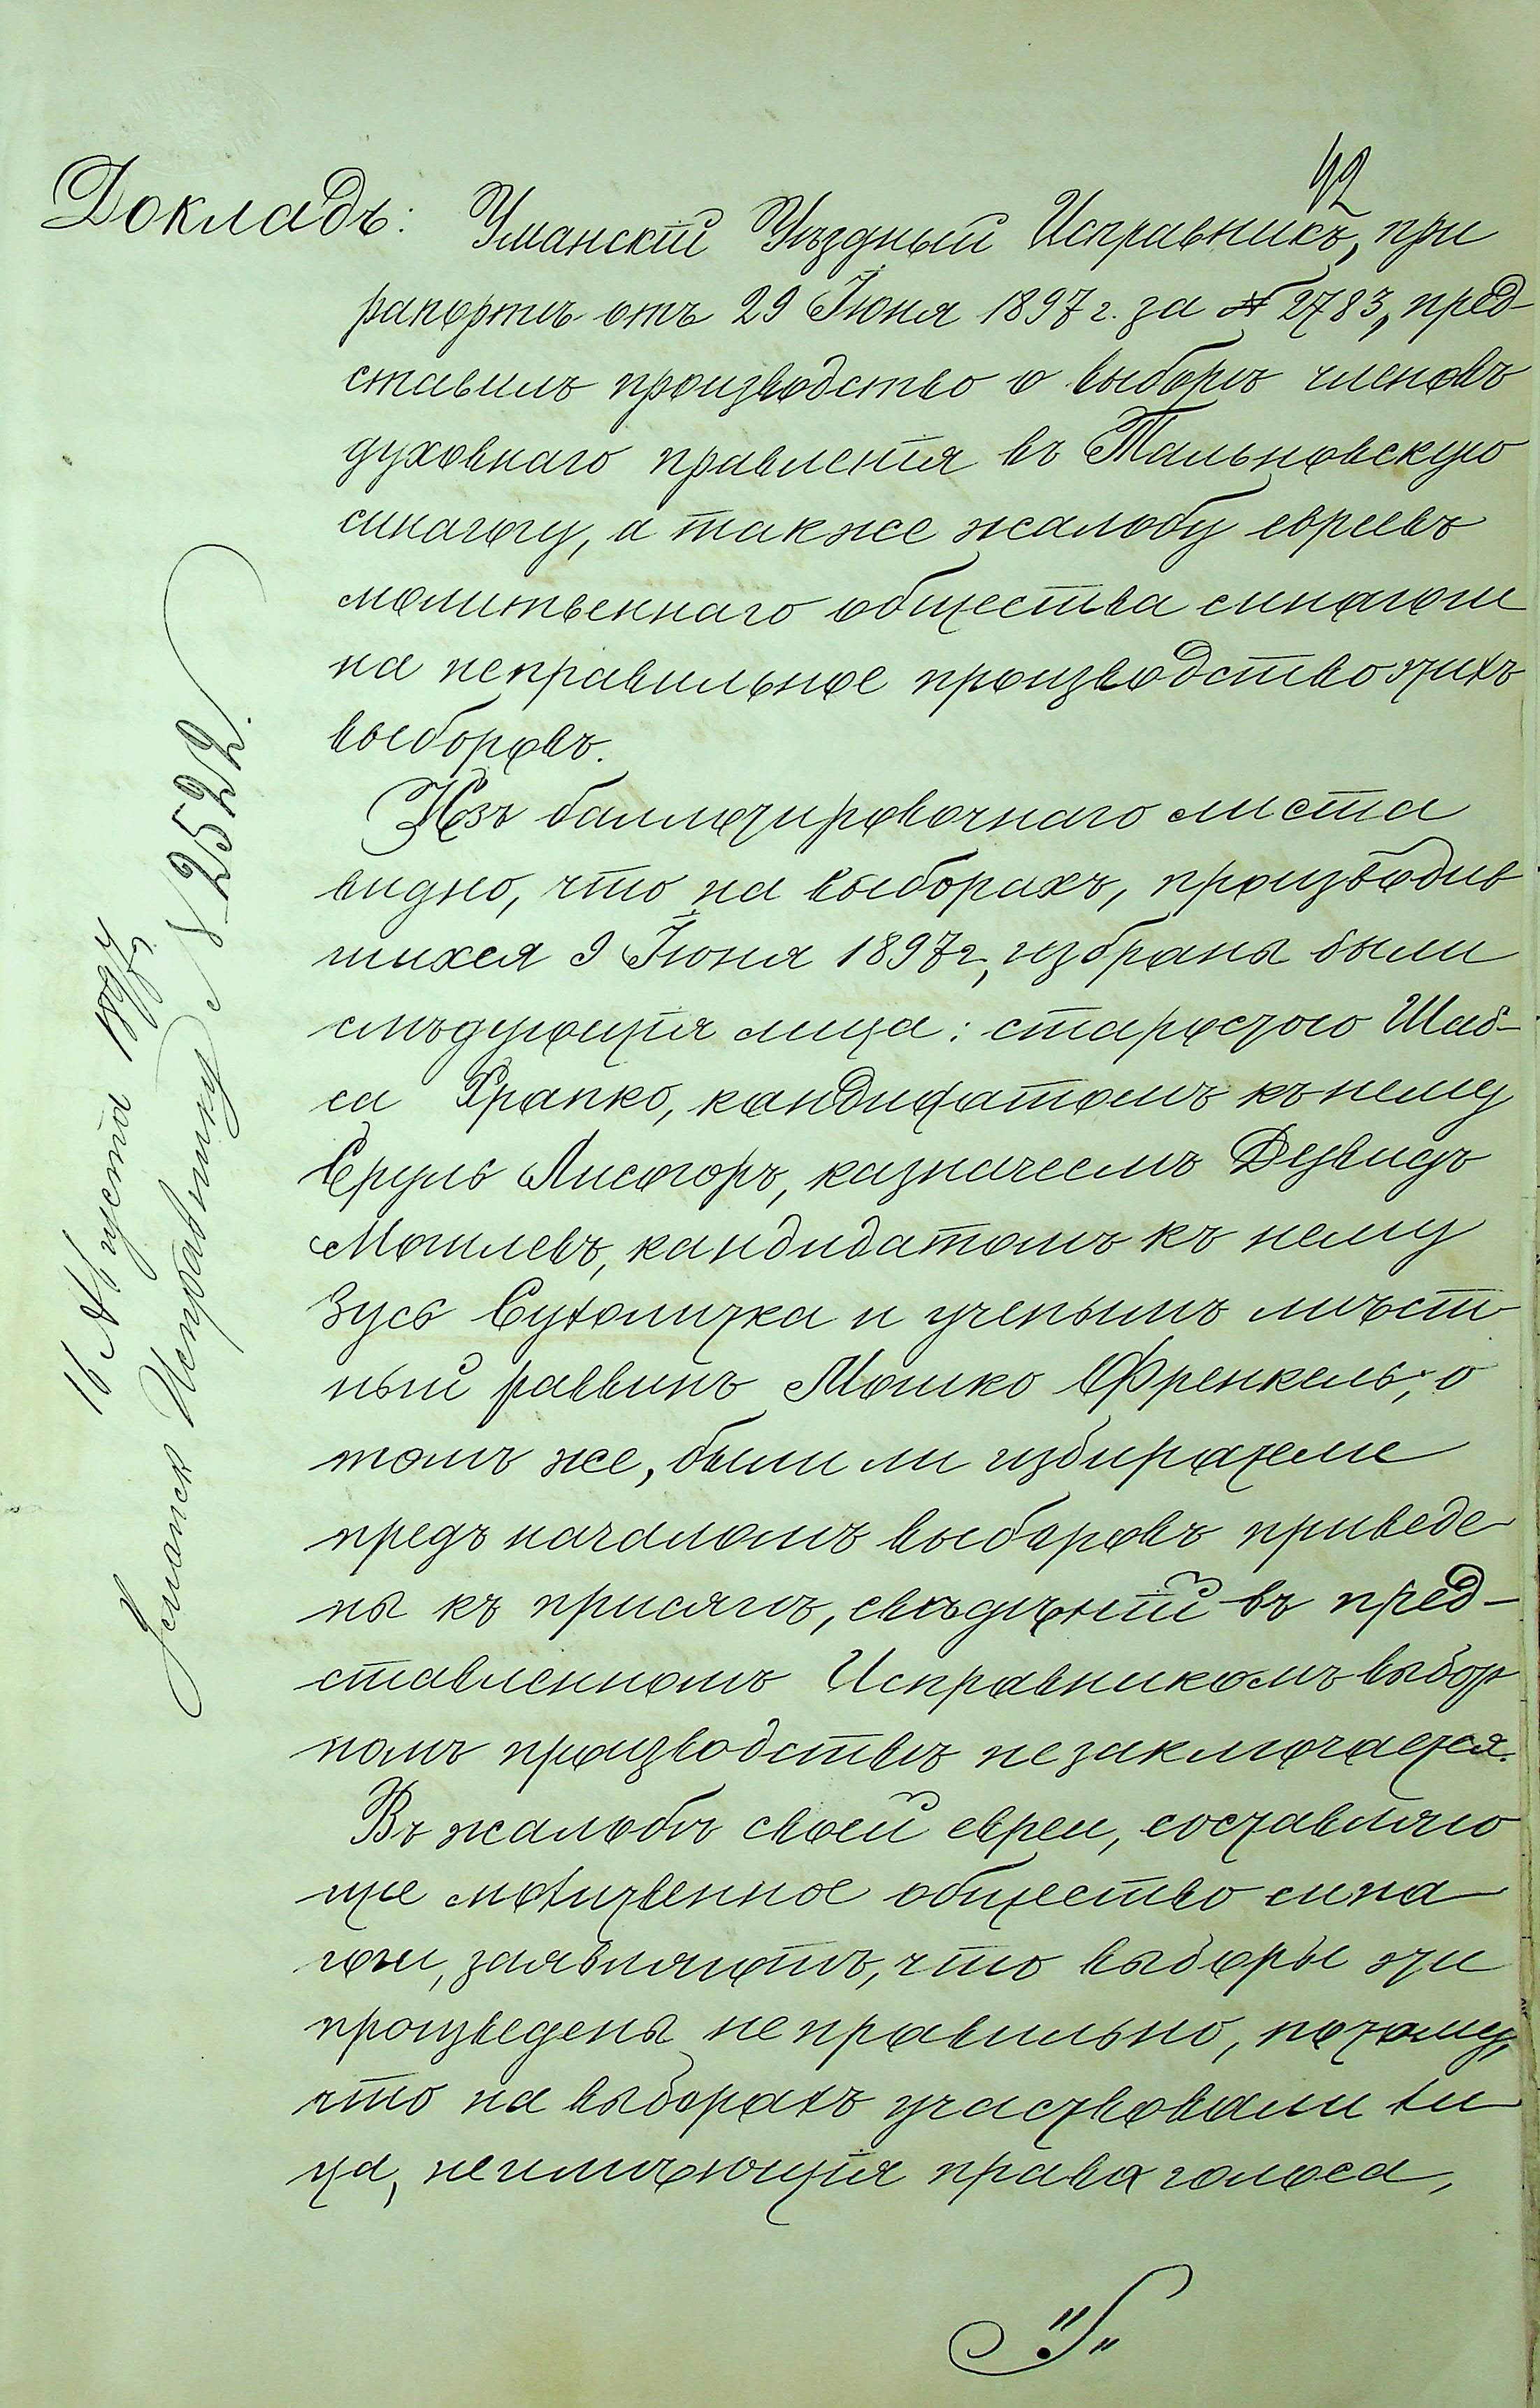 42
Докладъ: Уманскій Уѣздный Исправникъ, при
рапортѣ отъ 29 Іюня 1897 г. за № 2783, пред-
ставилъ производство о выборѣ членовъ
духовнаго правленія въ Тальновскую
синагогу, а также жалобу евреевъ
молитвеннаго общества синагоги
на неправильное производство этихъ
выборовъ.
Изъ баллотировочнаго листа
видно, что на выборахъ, производив
шихся 9 Іюня 1897 г., избраны были
слѣдующія лица: старостою Шаб-
са Храпко, кандидатомъ къ нему
Сруль Лисогоръ, казначеемъ Дезвидъ
Мошлевъ, кандидатомъ къ нему
Зусь Сухолитка и ученымъ мѣст
ный раввинъ Мошко Френкель; о
томъ же, были ли избиратели
предъ началомъ выборовъ приведе
ны къ присягѣ, свѣдѣній въ пред-
ставленномъ Исправникомъ выбор
номъ производствѣ не заключается.
Въ жалобѣ своей евреи, составляю
щіе молитвенное общество сина
гоги, заявляютъ, что выборы эти
произведены неправильно, потому,
что на выборахъ участвовали ли
ца, неимѣющія права голоса,
16 Августа 1897 г.
Уманск Исправнику № 2522.